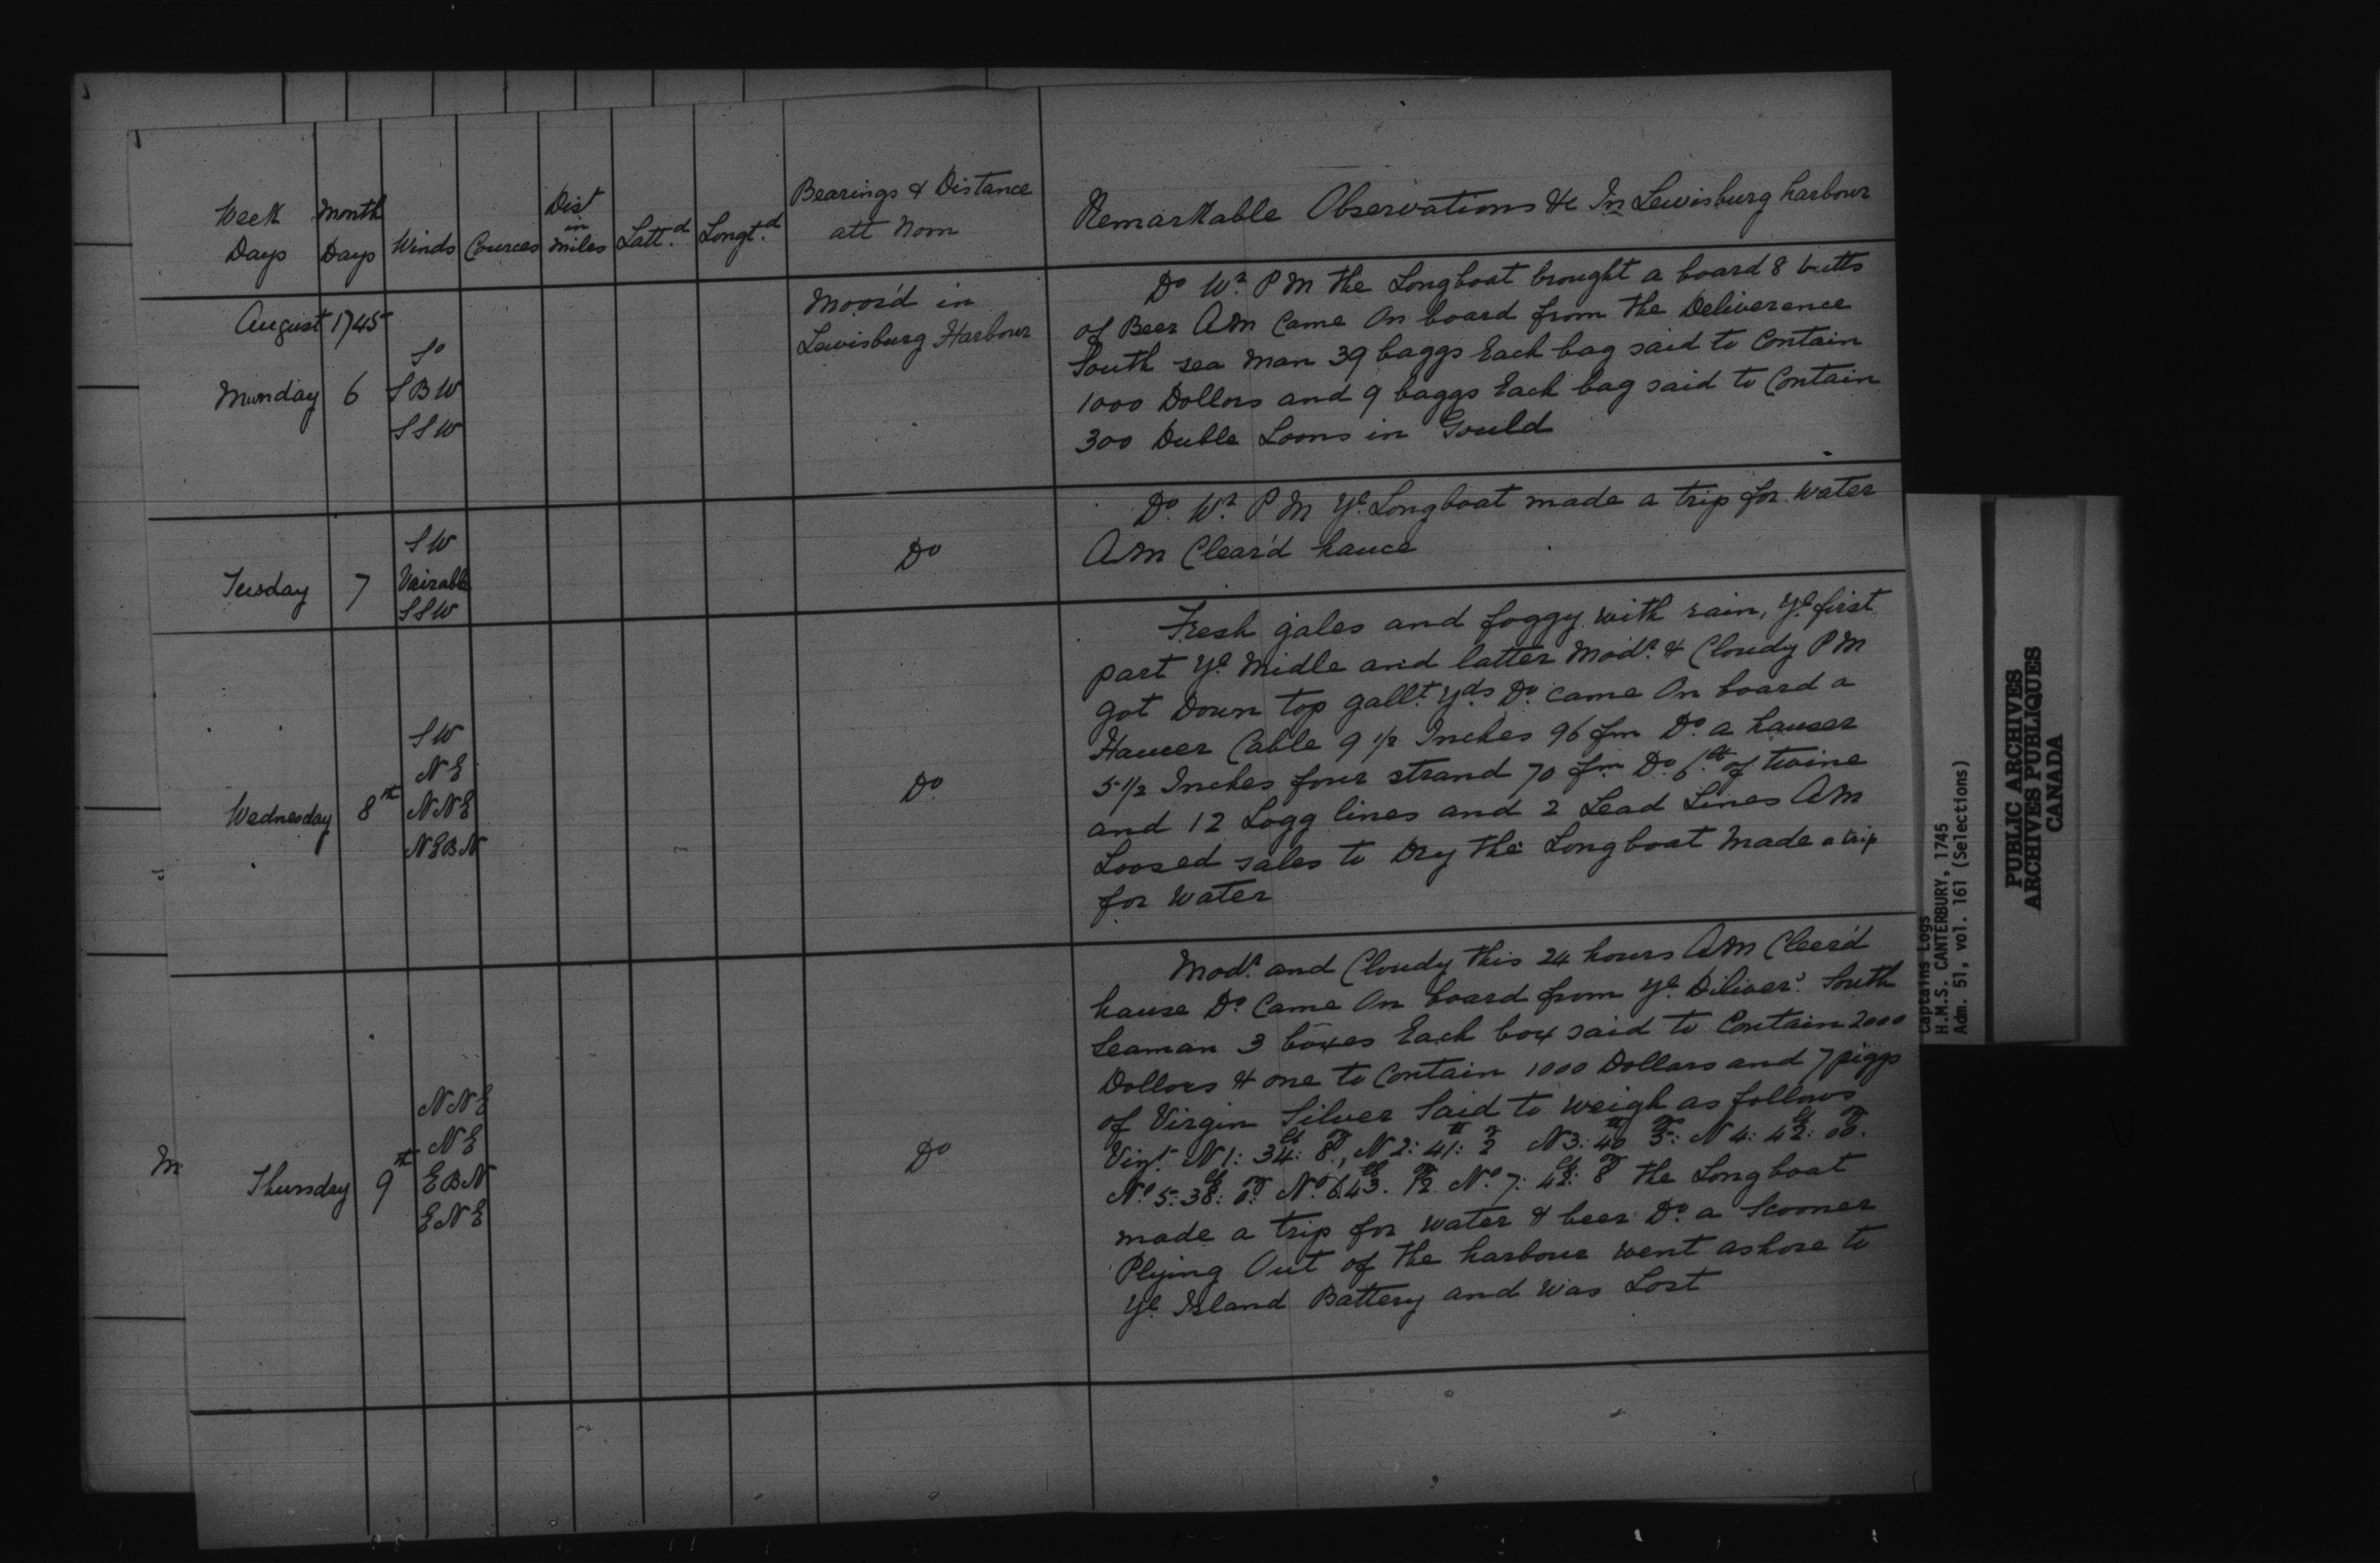 Week Days
Month Days
Winds
Cources
Dist in Miles
Latt.d
Longt.d
Bearings & Distance
att Noon
Remarkable Observations &c In Lewisburg harbour
August 1745
Munday 6
So
SBW
SSW
Moor'd in
Lewisburg Harbour
Do Wr. PM the Longboat brought a board 8 butts
of Beer AM Came On board from the Deliverence
South sea man 39 baggs Each bag said to Contain
1000 Dollors and 9 baggs Each bag said to Contain
300 Duble Loons in Gould
Tusday 7
SW
Vairable
SSW
Do
Do. Wr. PM Ye. Longboat made a trip for Water
AM Clear'd hauce
Wednesday 8th
SW
NE
NNE
NEBN
Do.
Fresh gales and foggy with rain, Ye. first
part Ye. Midle and latter Modr. & Cloudy PM
got Down top gallt. Yds Do. came On board a
Hawer Cable 9 1/2 Inches 96 fm Do. a hauser
5 1/2 Inches four strand 70 fm Do. of twine
and 12 Logg lines and 2 Lead Lines AM
Loosed sales to Dry the Longboat Made a trip
for Water
Thursday 9th
NNE
NE
EBN
ENE
Do
Modr. and Cloudy this 24 hours AM Cleer'd
hause Do. Came On board from Ye. Diliver. South
Seaman 3 boxes Each box said to Contain 2000
Dollors & one to Contain 1000 Dollars and 7 piggs
of Virgin Silver Said to weigh as follows
Vizt. N 1: 34: 8, N 2: 41: 2 N 3: 40 5: N 4: 42: 00.
No. 5: 38: 0: No. 6. 43. 1/2 No. 7: 42: 8 the Longboat
made a trip for water & beer Do. a Scooner
Plying Out of the harbour went ashore to
Ye. Island Battery and was Lost
M
Captains Logs
H.M.S. CANTERBURY, 1745
Adm. 51, vol. 161 (Selections)
PUBLIC ARCHIVES
ARCHIVES PUBLIQUES
CANADA